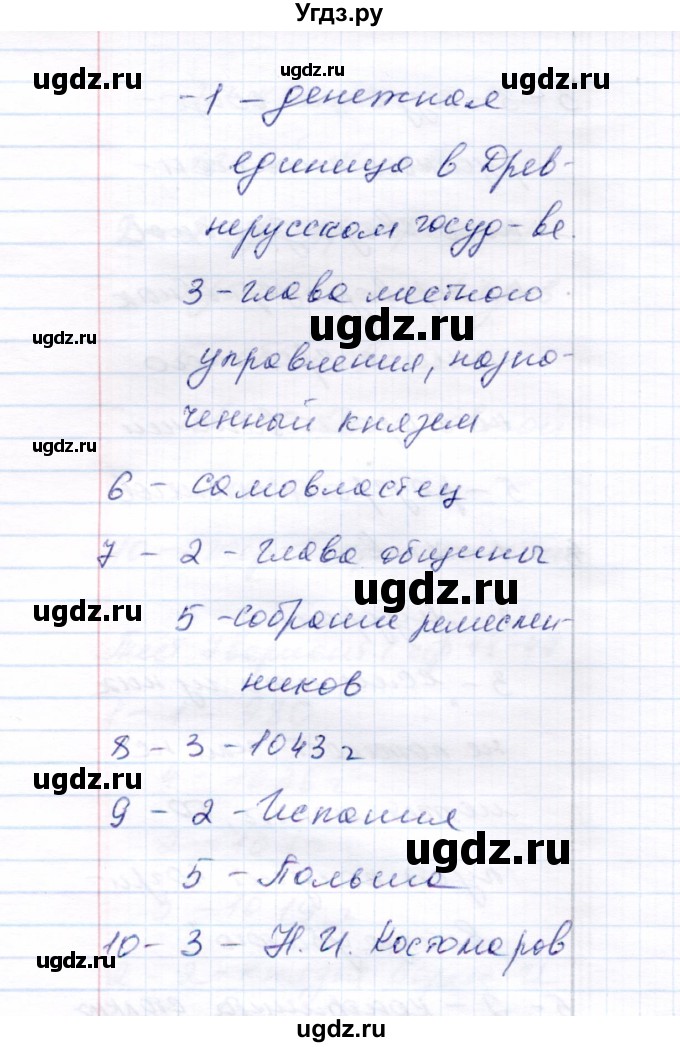 Угдз.ру
ugdz.ru ugdz.ru ugdz.ru
- 1 – денежная
единица в Древ-
нерусском госуд-ве.
3 – глава местного
ugdz.ru
ugdz.ru
управления, назна-
ченный князем
ugdz.ru
6 – самовластец
7 – 2 – глава общины
ugdz.ru
ugdz.ru
5 – собрание ремеслен-
ников
8 – 3 – 1043 г
ugdz.ru
9 – 2 – Испания
ugdz.ru
5 – Польша
10 – 3 – Н. И. Костомаров
ugdz.ru
ugdz.ru
ugdz.ru